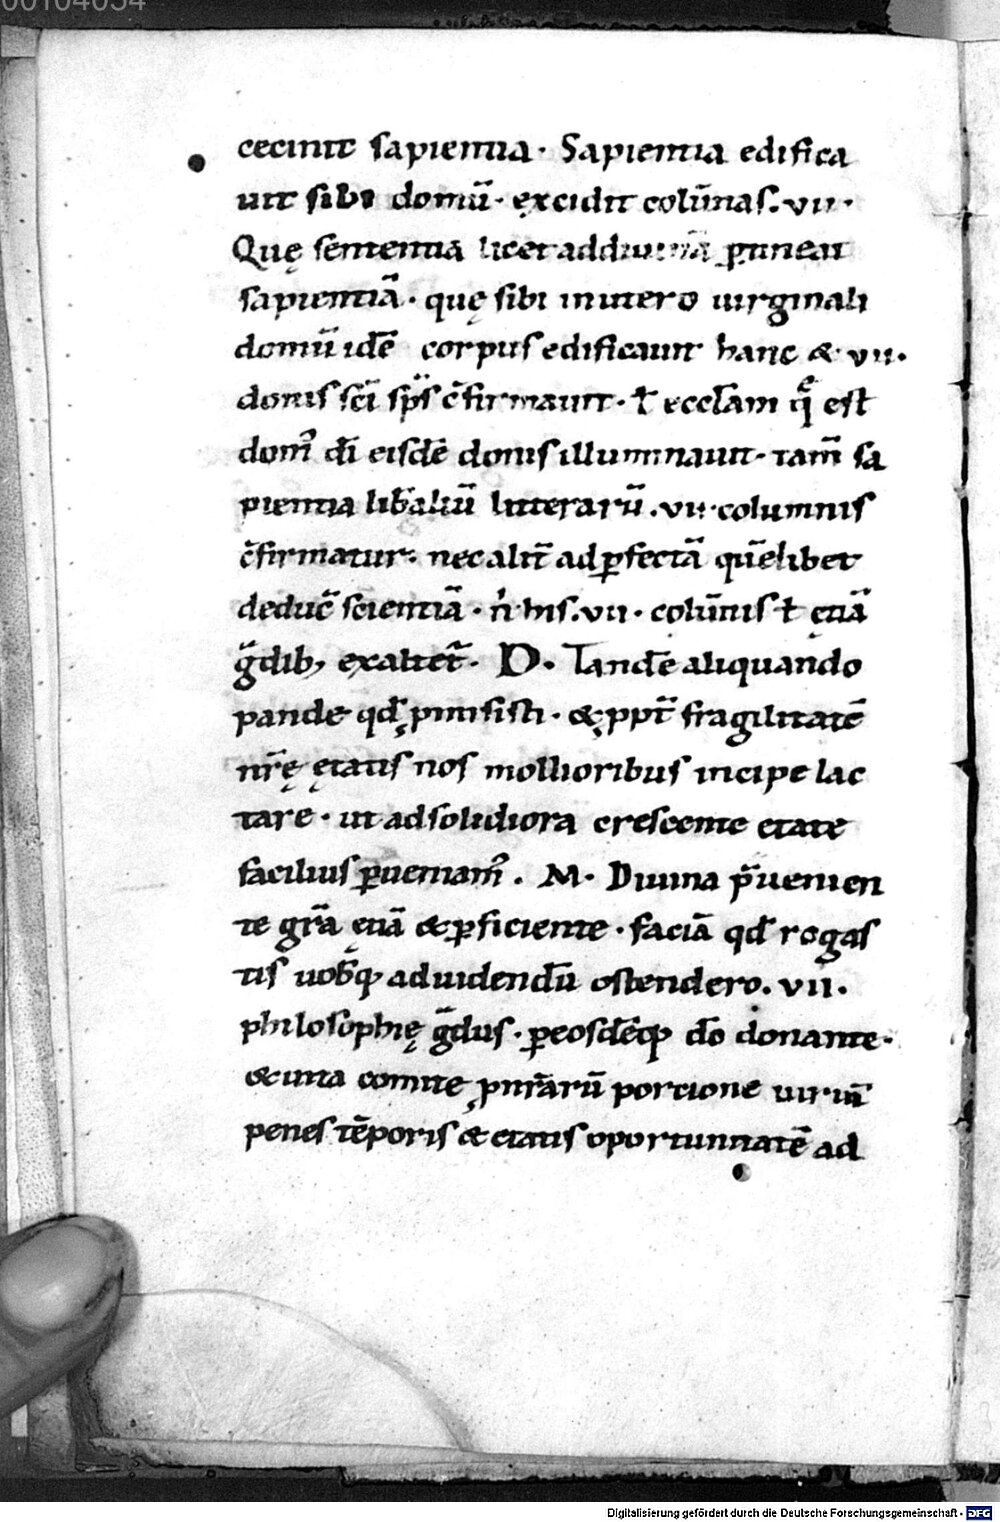 00104054
cecinit sapientia · Sapientia edifica
uit sibi domū · excidit colūnas · vii ·
Quę sententia licet addiuinā ꝑtineat
sapientiā · quę sibi inutero uirginali
domū idē corpus edificauit hanc & vii ·
donis sc̄i sp̄s c̄firmauit · ł eccl̄am q̄ est
domꝰ dī eisdē donis illuminauit · tam̄ sa
pientia lib̄aliū litterarū · vii · columnis
c̄firmatur · nec alit̄ ad ꝑfectā quēlibet
deduc̄ scientiā · n̄ his · vii · colūnis ł etiā
g̃dib; exaltet̄ · D · Tandē aliquando
pande qd̄ ꝓmisisti · & ꝓpt̄ fragilitatē
nr̄ę ętatis nos mollioribus incipe lac
tare · ut ad solidiora crescente etate
facilius ꝑueniamꝰ · M · Diuina p̄uenien
te gr̄a etiā & ꝑficiente · faciā qd̄ rogas
tis uob̄qꝫ ad uidendū ostendero · vii ·
philosophię g̃dus · ꝑ eosdēqꝫ dō donante ·
& uita comite ꝓ nr̄arū portione uiriū
penes tēporis & etatis oportunitatē ad
Digitalisierung gefördert durch die Deutsche Forschungsgemeinschaft - DFG